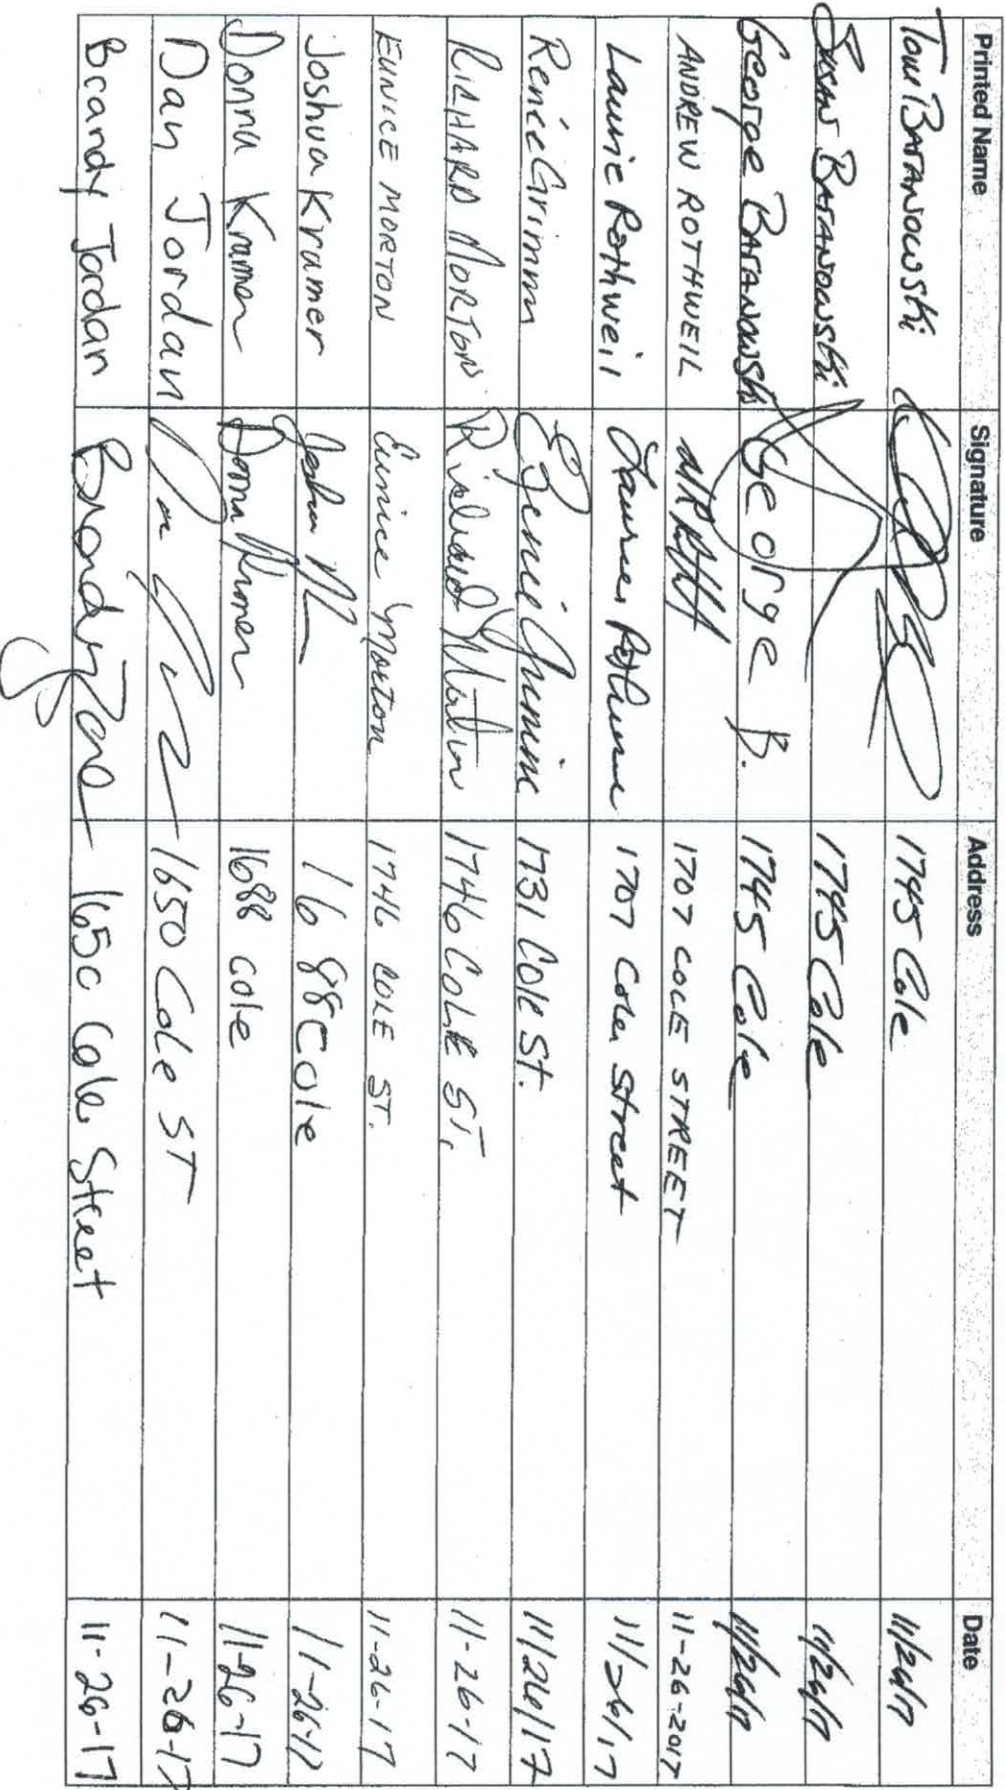 Printed Name Signature Address Date
Tom Baranowski 1745 Cole 11/26/17
Susan Baranowski 1745 Cole 11/26/17
George Baranowski George B. 1745 Cole 11/26/17
ANDREW ROTHWEIL 1707 COLE STREET 11-26-2017
Laurie Rothweil 1707 Cole Street 11/26/17
Renée Grimm Renée Grimm 1731 Cole St. 11/26/17
RICHARD MORTON Richard Morton 1746 COLE ST. 11-26-17
EUNICE MORTON Eunice Morton 1746 COLE ST. 11-26-17
Joshua Kramer 1688 Cole 11-26-17
Donna Kramer Donna Kramer 1688 Cole 11-26-17
Dan Jordan 1650 Cole ST 11-26-17
Brandy Jordan Brandy 1650 Cole Street 11-26-17